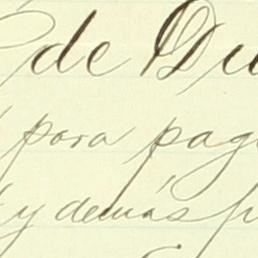 de Du
para pag
y demás p